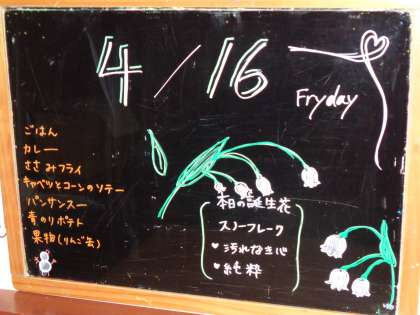 4/16
Fryday
ごはん
カレー
ささみフライ
キャベツとコーンのソテー
バンサンスー
青のりポテト
果物(りんご缶)
本日の誕生花
スノーフレーク
♥汚れなき心
♥純粋